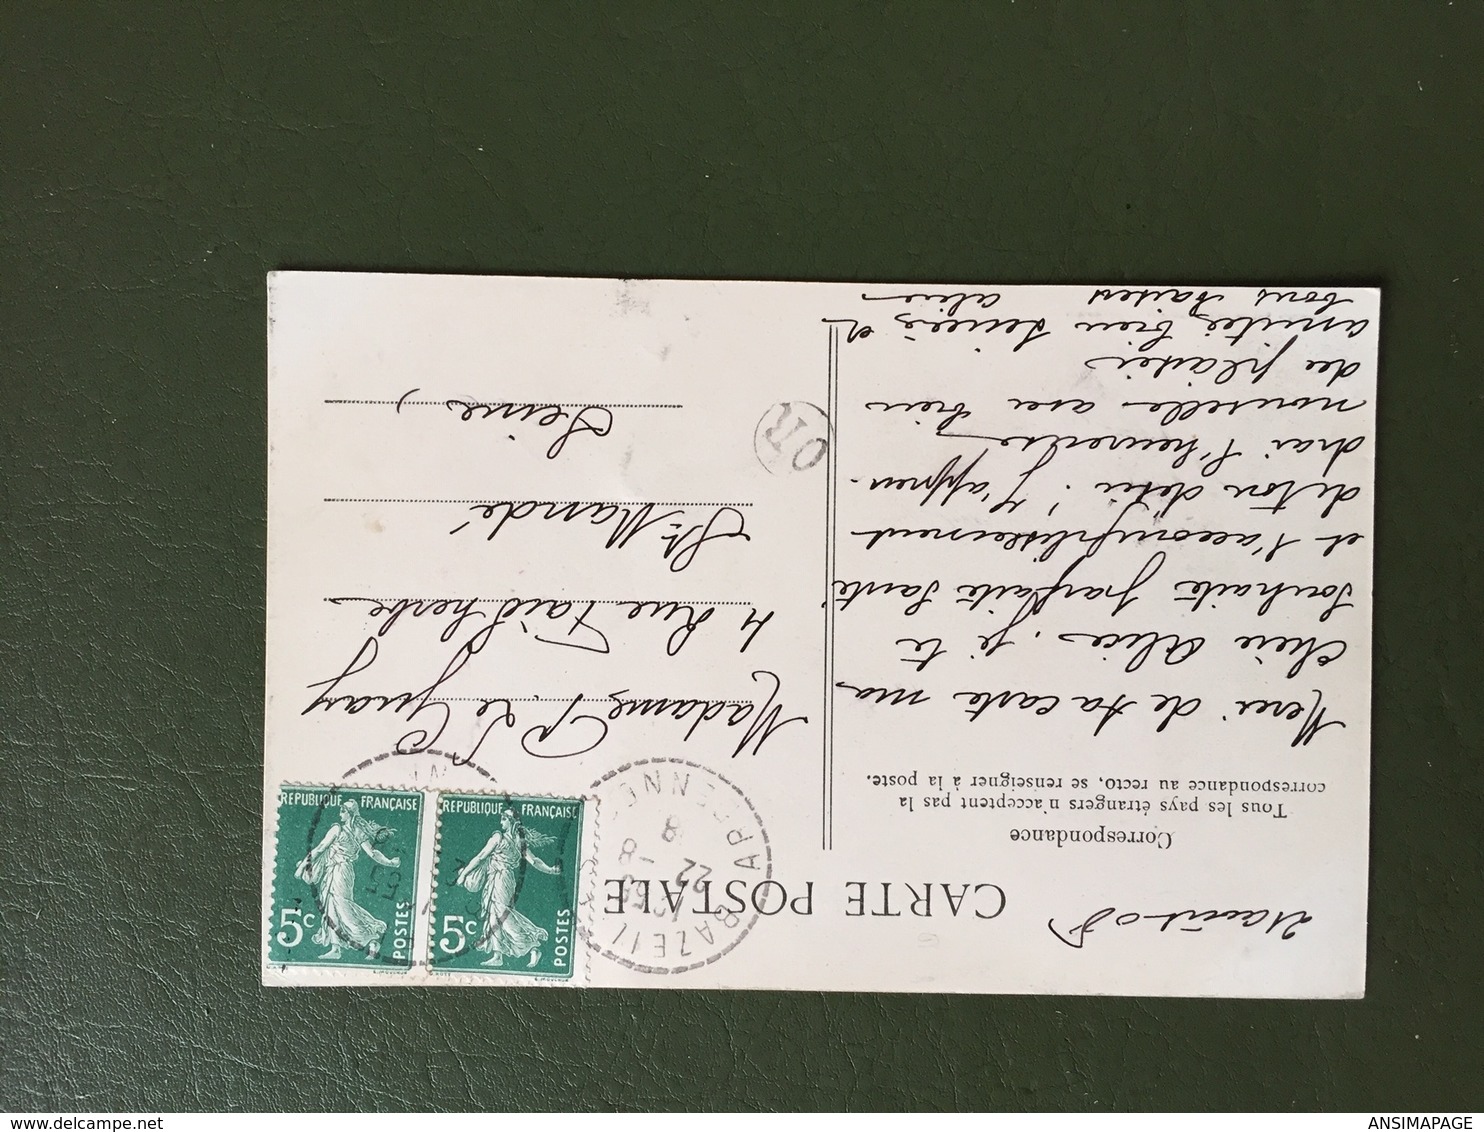 21 août 08
CARTE POSTALE
Correspondance
Tous les pays étrangers n'acceptent pas la
correspondance au recto, se renseigner à la poste.
Merci de ta carte ma
chère Alice. je te
souhaite parfaite santé
et l'accomplissement
de ton désir! J'appren-
drai l'heureuse
nouvelle avec bien
du plaisir
amitiés bien sincères et
bons baisers
Madame P. Le Guay
4 Rue Faidherbe
St Mandé
Seine
OR
BAZEILLES
ARDENNES
22
8
08
REPUBLIQUE FRANÇAISE
5c
POSTES
REPUBLIQUE FRANÇAISE
5c
POSTES
ANSIMAPAGE